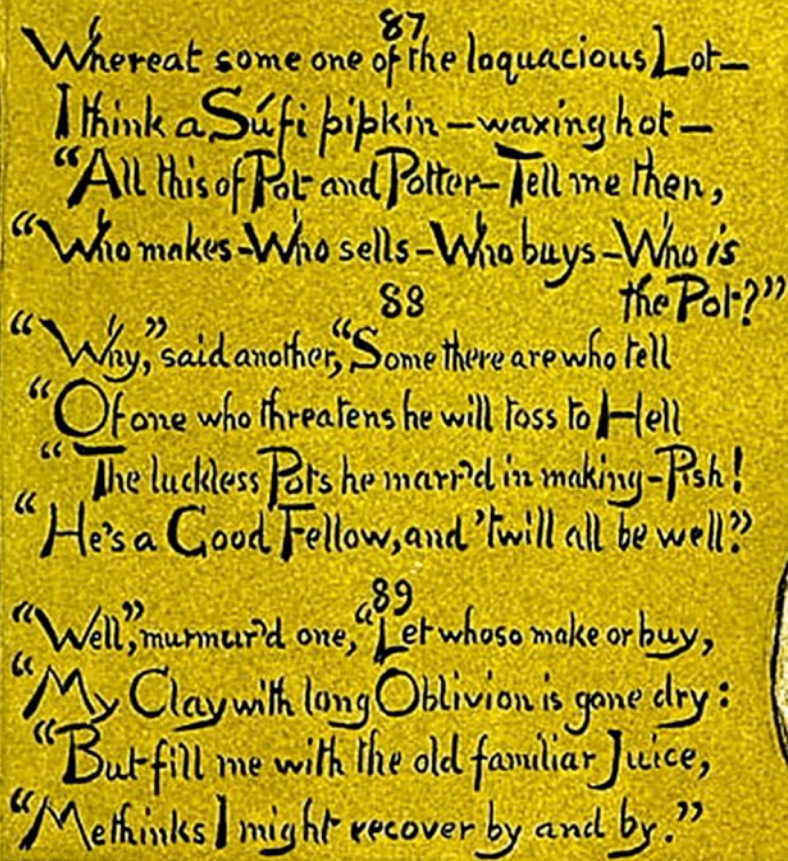 87
Whereat some one of the loquacious Lot—
I think a Súfi pipkin—waxing hot—
“All this of Pot and Potter—Tell me then,
“Who makes—Who sells—Who buys—Who is
the Pot?”
88
“Why,” said another, “Some there are who tell
“Of one who threatens he will toss to Hell
“The luckless Pots he marr’d in making—Pish!
“He’s a Good Fellow, and ’twill all be well.”
89
“Well,” murmur’d one, “Let whoso make or buy,
“My Clay with long Oblivion is gone dry:
“But fill me with the old familiar Juice,
“Methinks I might recover by and by.”